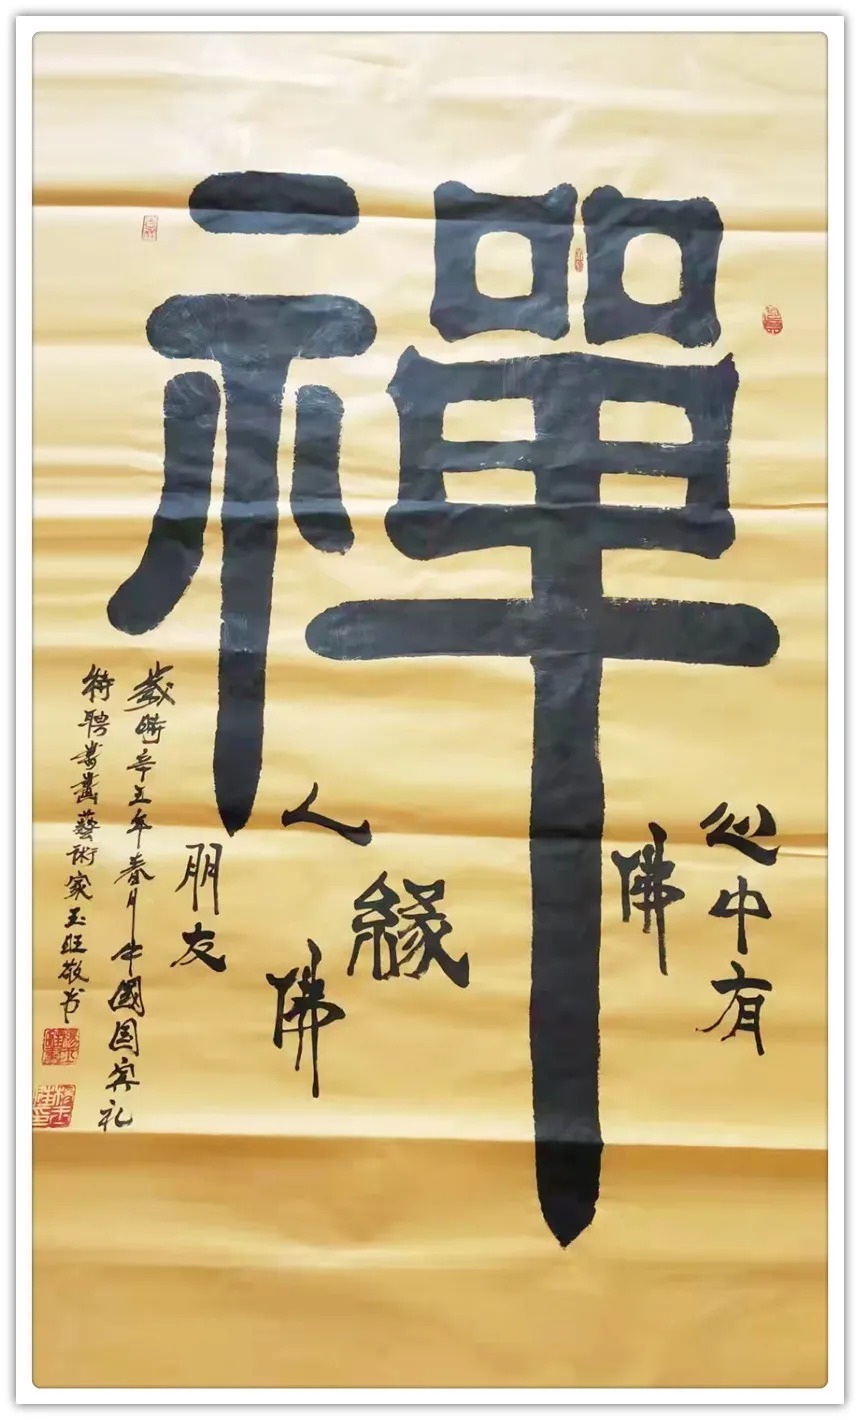 禪
心中有
佛
緣
人
佛
朋友
歲時辛丑年春月中國国宾礼
特聘書畫藝術家玉旺敬书